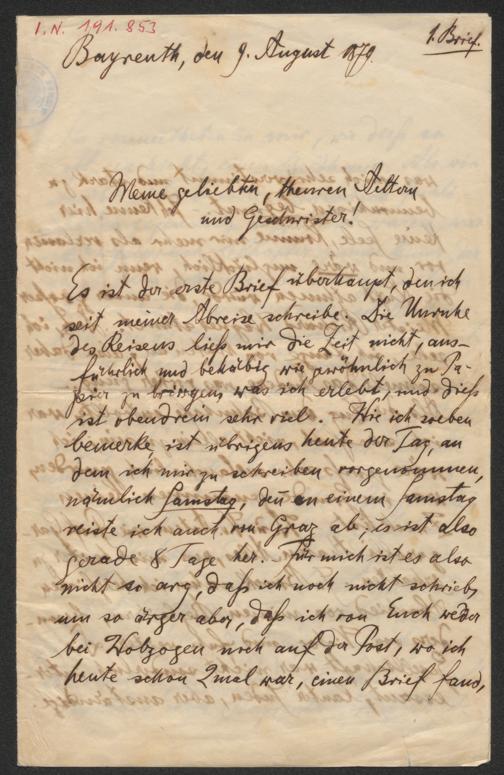 I.N. 191.853
1. Brief.
Bayreuth, den 9. August 1879.
Meine geliebten, theuren Aeltern
und Geschwister!
Es ist der erste Brief überhaupt, den ich
seit meiner Abreise schreibe. Die Unruhe
des Reisens ließ mir die Zeit nicht, aus-
führlich und behäbig wie gewöhnlich zu Pa-
pier zu bringen, was ich erlebt, und dieß
ist obendrein sehr viel. Wie ich soeben
bemerke, ist übrigens heute der Tag, an
dem ich mir zu schreiben vorgenommen,
nämlich Samstag, den an einem Samstag
reiste ich auch von Graz ab; es ist also
gerade 8 Tage her. Für mich ist es also
nicht so arg, daß ich noch nicht schrieb,
um so ärger aber, daß ich von Euch weder
bei Wolzogen noch auf der Post, wo ich
heute schon 2mal war, einen Brief fand,